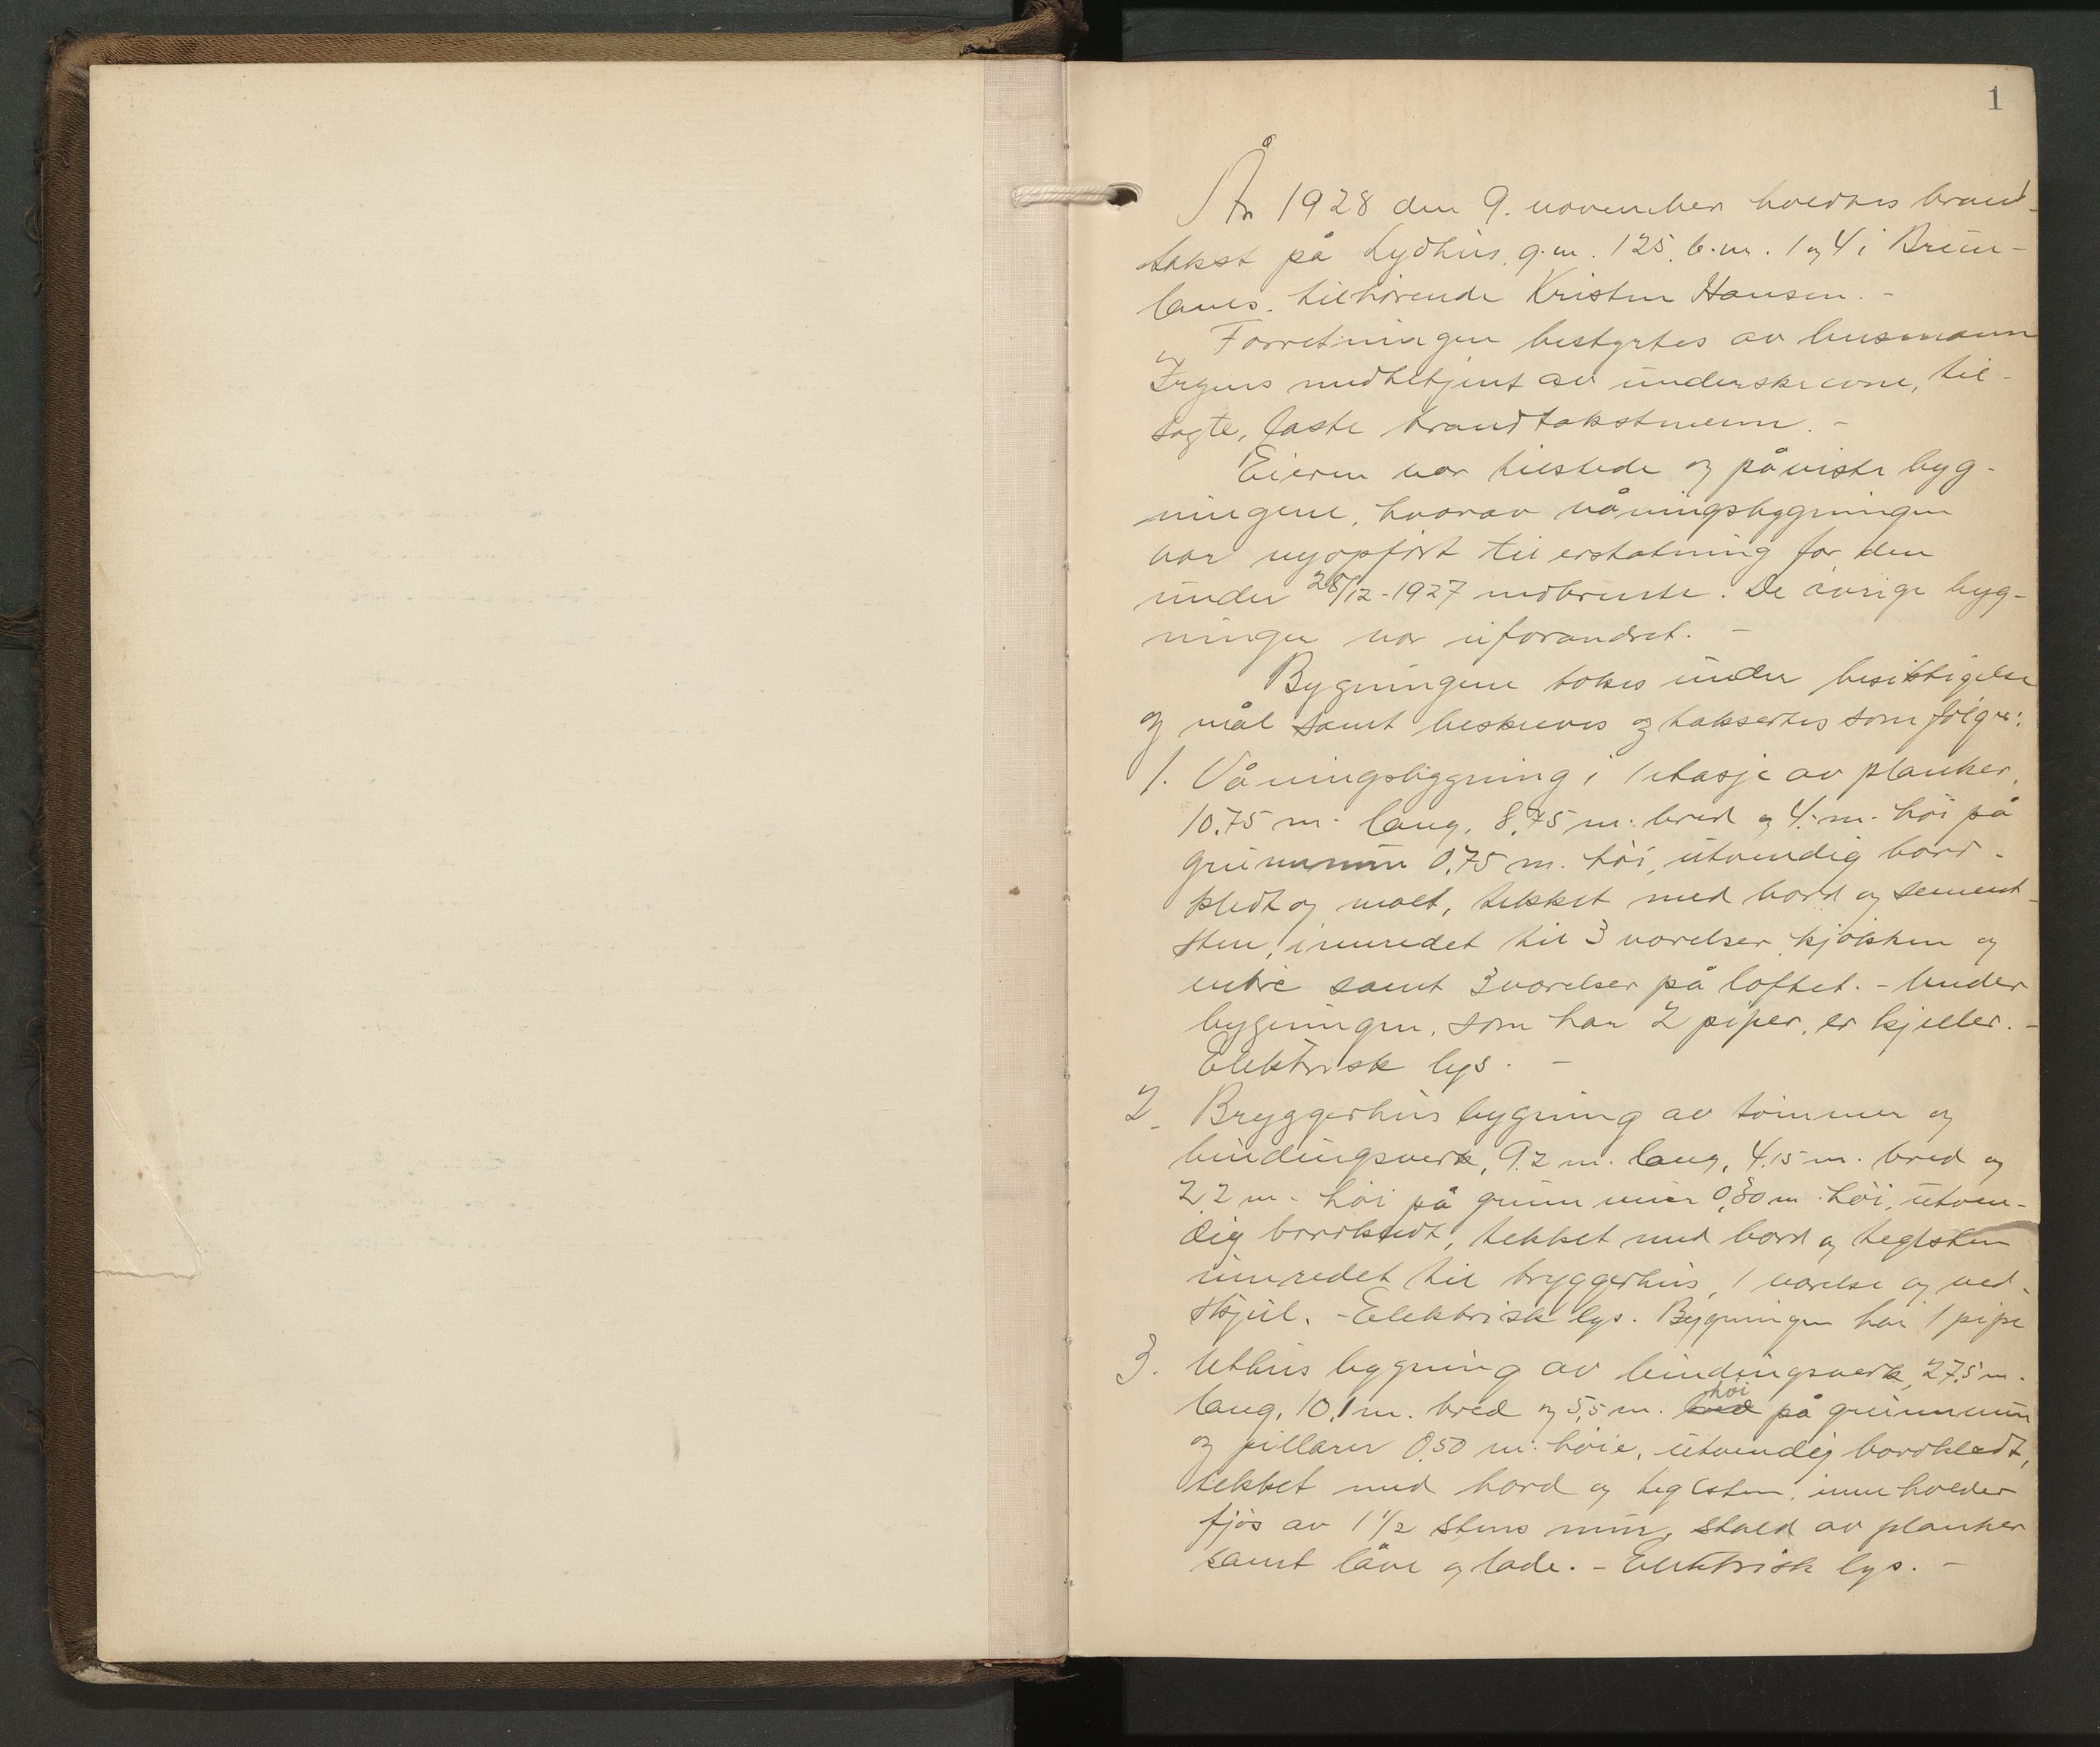 1
År 1928 den 9. november holdtes brand-
takst på Lydhus, g.nr. 125, b.nr. 1 og 4 i Brun-
lanes, tilhørende Kristen Hansen. -
Forretningen bestyrtes av lensmann
Irgens medbetjent av underskrevne, til-
sagte, faste brandtakstmenn. -
Eieren var tilstede og påviste byg-
ningene, hvorav våningsbygningen
var nyopført til erstatning for den
under 28/12-1927 nedbrente. De øvrige byg-
ninger var uforandret. -
Bygningene tokes under besiktigelse
og mål samt beskreves og taksertes som følger:
1. Våningsbygning i 1 etasje av planker,
10,75 m. lang, 8,75 m. bred og 4,- m. høi på
grunnmur 0,75 m. høi, utvendig bord-
kledt og malt, tekket med bord og sement-
sten, innredet til 3 værelser, kjøkken og
entre samt 3 værelser på loftet. - Under
bygningen, som har 2 piper, er kjeller. -
Elektrisk lys. -
2. Bryggerhusbygning av tømmer og
bindingsverk, 9,2 m. lang, 4,15 m. bred og
2,2 m. høi på grunnmur 0,30 m. høi, utven-
dig bordkledt, tekket med bord og teglsten
innredet til bryggerhus, 1 værelse og ved-
skjul. - Elektrisk lys. Bygningen har 1 pipe
3. Uthusbygning av bindingsverk, 27,5 m.
lang, 10,1 m. bred og 5,5 m. bred høi på grunnmur
og pillarer 0,50 m. høie, utvendig bordkledt,
tekket med bord og teglsten, inneholder
fjøs av 1 1/2 stens mur, stald av planker
samt låve og lade. - Elektrisk lys. -